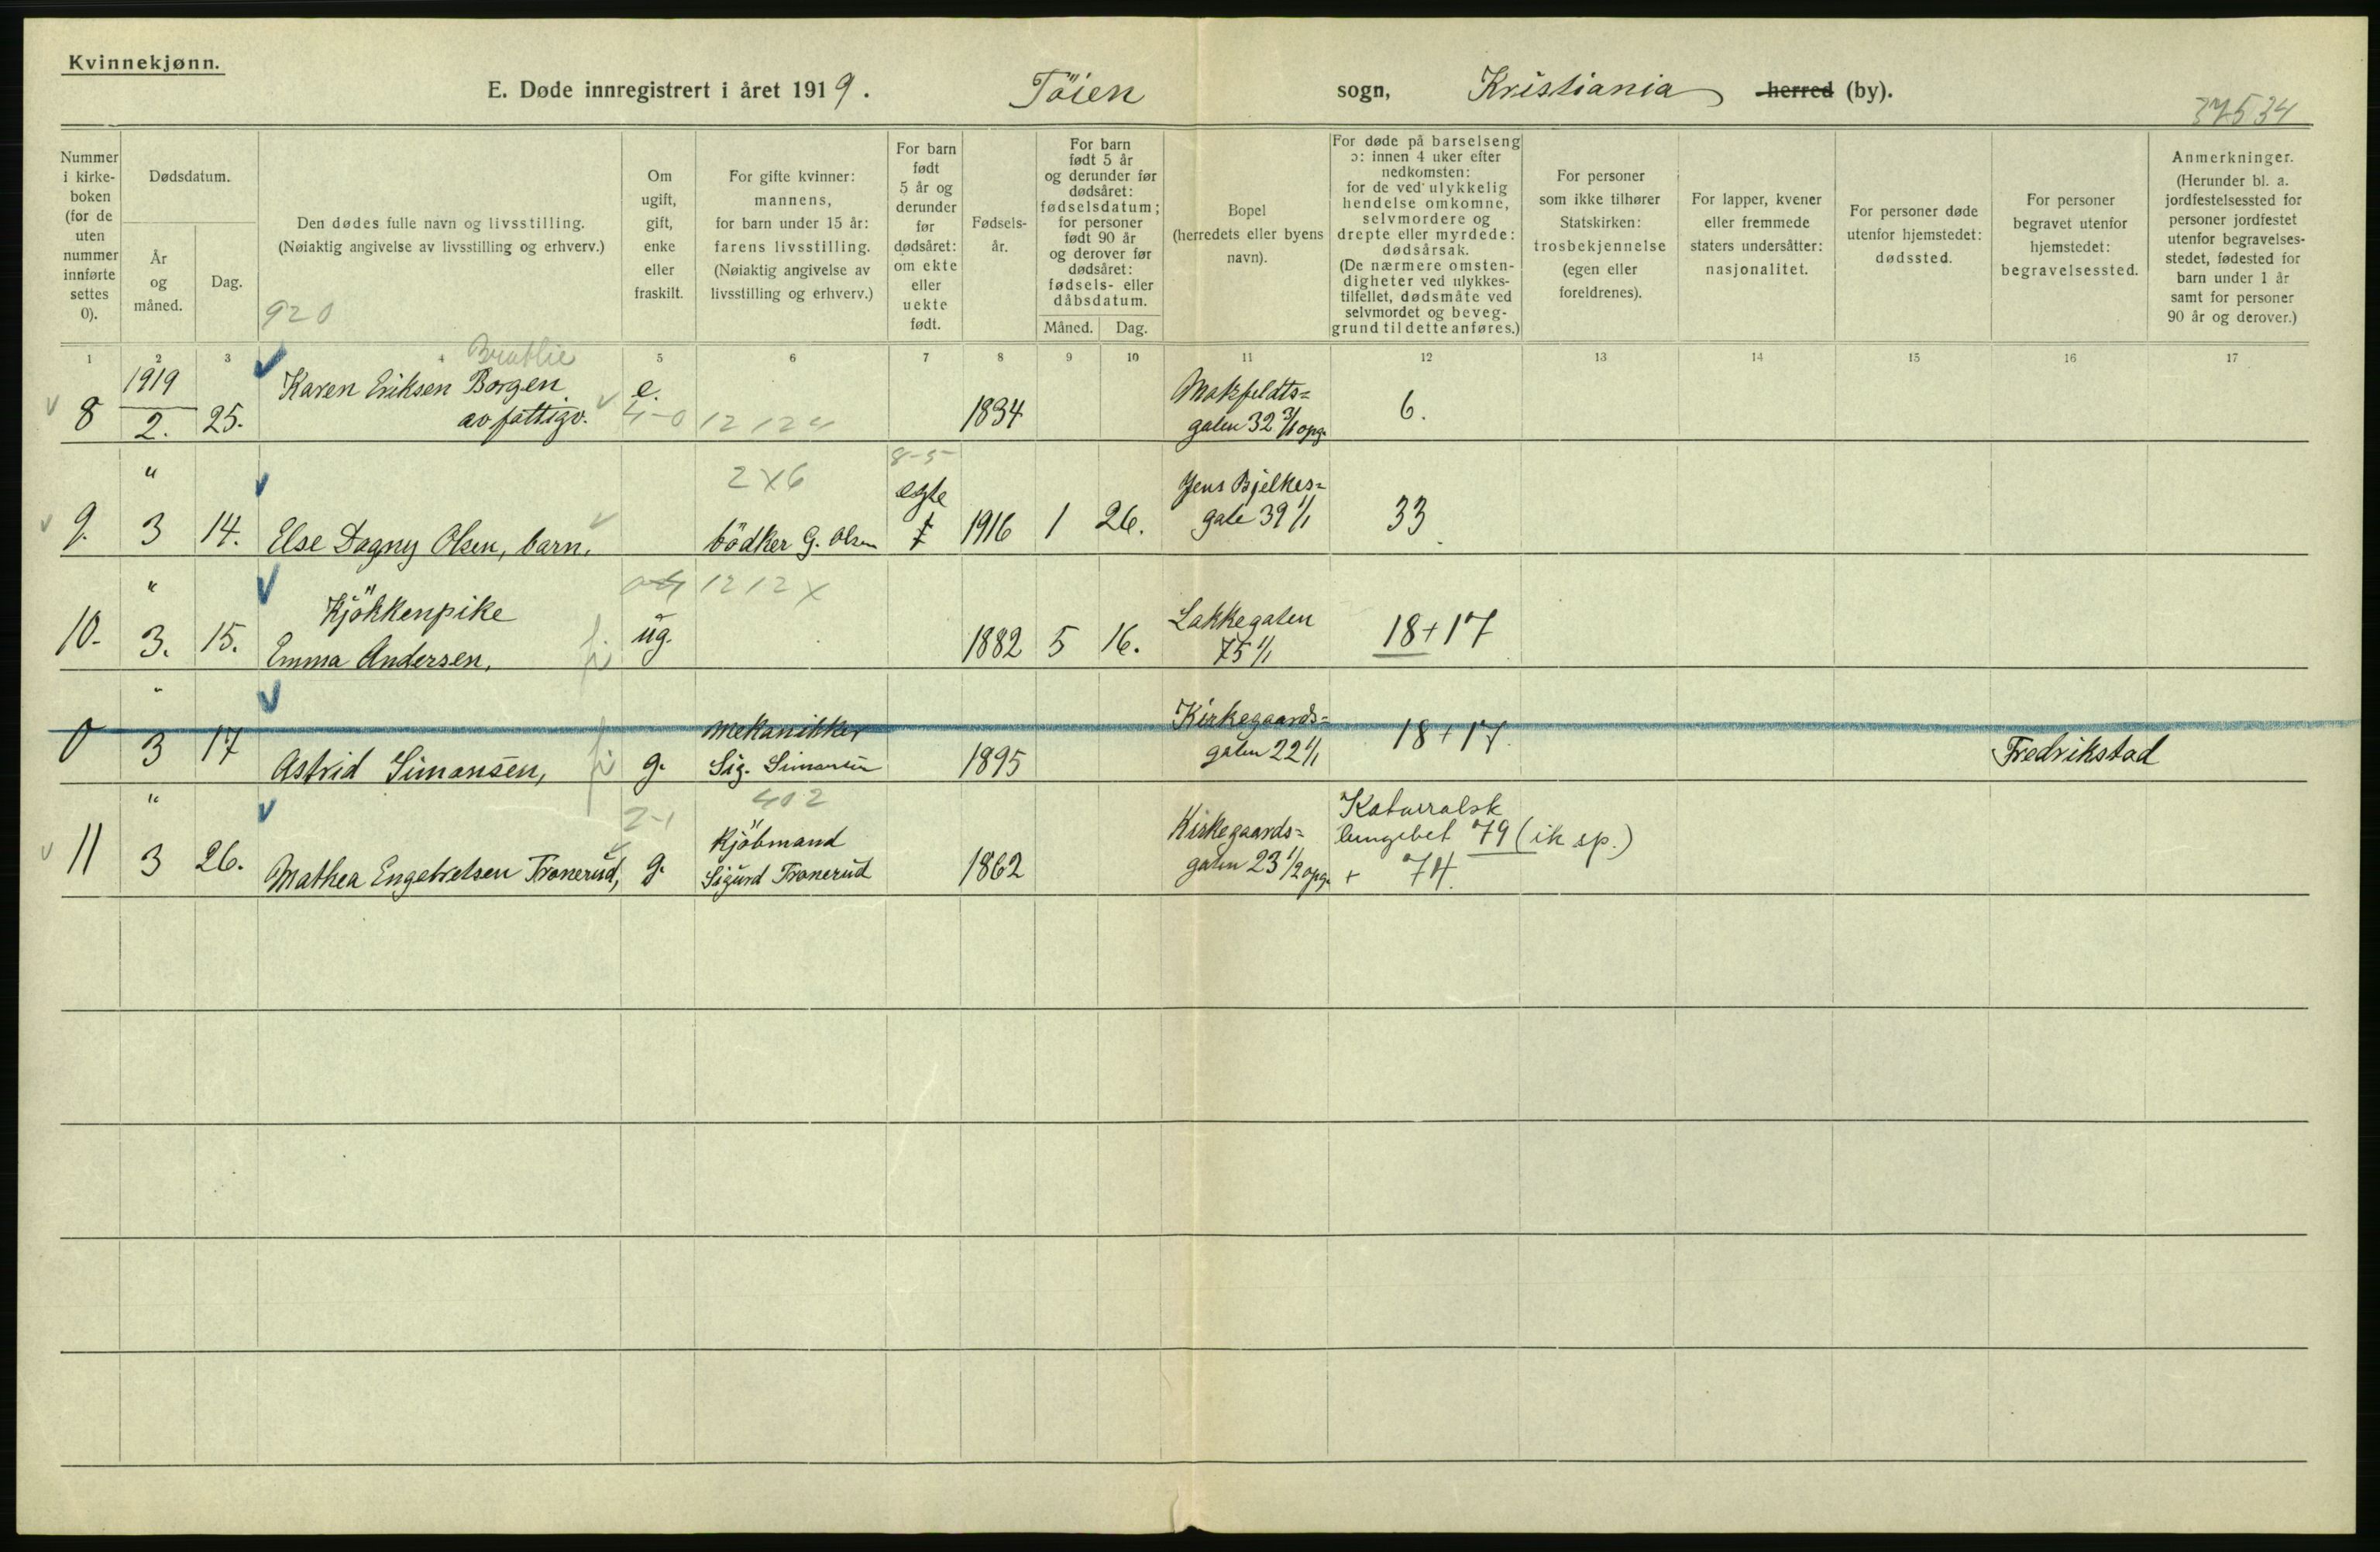 Kvinnekjønn.
E. Døde innregistrert i året 1919. Töien sogn, Kristiania herred (by).
37534
Nummer i kirke-boken (for de uten nummer innførte settes 0).
Dødsdatum.
År og måned.
Dag.
Den dødes fulle navn og livsstilling.
(Nøiaktig angivelse av livsstilling og erhverv.)
920
Om ugift, gift, enke eller fraskilt.
For gifte kvinner: mannens, for barn under 15 år: farens livsstilling. (Nøiaktig angivelse av livsstilling og erhverv.)
For barn født 5 år og derunder før dødsåret: om ekte eller uekte født.
Fødsels-år.
For barn født 5 år og derunder før dødsåret: fødselsdatum; for personer født 90 år og derover før dødsåret: fødsels- eller dåbsdatum.
Måned. Dag.
Bopel (herredets eller byens navn).
For døde på barselseng ɔ: innen 4 uker efter nedkomsten: for de ved ulykkelig hendelse omkomne, selvmordere og drepte eller myrdede: dødsårsak. (De nærmere omsten-digheter ved ulykkes-tilfellet, dødsmåte ved selvmordet og beveg-grund til dette anføres.)
For personer som ikke tilhører Statskirken: trosbekjennelse (egen eller foreldrenes).
For lapper, kvener eller fremmede staters undersåtter: nasjonalitet.
For personer døde utenfor hjemstedet: dødssted.
For personer begravet utenfor hjemstedet: begravelsessted.
Anmerkninger. (Herunder bl. a. jordfestelsessted for personer jordfestet utenfor begravelses-stedet, fødested for barn under 1 år samt for personer 90 år og derover.)
1 2 3 4 5 6 7 8 9 10 11 12 13 14 15 16 17
1919 Karen Eriksen Borgen e. Makfeldts=
8 2. 25. av fattigv. 4-0 12124 1834 galen 32 3/1 opg. 6.
" 2X6 8-5 egte Jens Bjelkes=
9. 3 14. Else Dagny Olsen, barn. bödker G. Olsen 1916 1 26. gate 39 1/1 33
" Kjökkenpike 1212X Lakkegaten
10. 3. 15. Emma Andersen, ug. 1882 5 16. 75 1/1 18+17
" mekanikker Kirkegaards=
0 3 17 Astrid Simonsen, g. Sig. Simonsen 1895 gaten 22 1/1 18+17. Fredrikstad
" 2-1 402 Kjöbmand Kirkegaards= Katarralsk lungebet 79 (ik sp.)
11 3 26. Mathea Engebretsen Tronerud, g. Sigurd Tronerud 1862 gaten 23 1/2 opg. + 74.